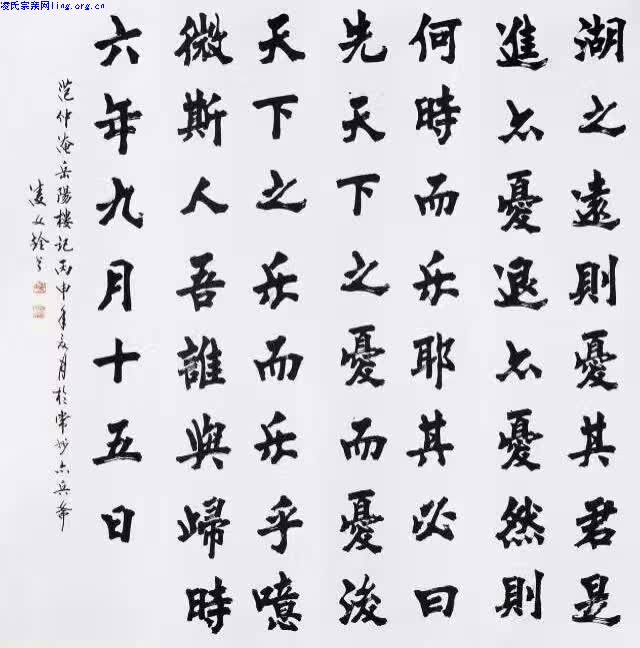 凌氏宗亲网ling.org.cn
湖之遠則憂其君是
進亦憂退亦憂然則
何時而乐耶其必曰
先天下之憂而憂後
天下之乐而乐乎噫
微斯人吾誰與歸時
六年九月十五日
范仲淹岳陽樓記丙申年夏月於常
凌文